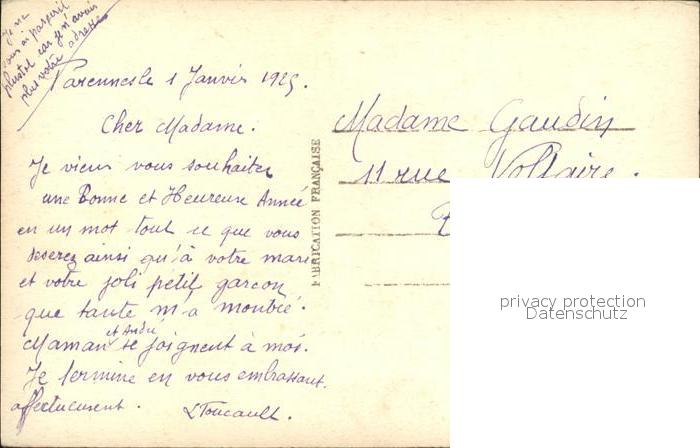 Je ne
vous ai pas écrit
plustot car je n'avais
plus votre adresse
Parennes le 1 Janvier 1925.
Cher Madame.
Je viens vous souhaiter
une Bonne et Heureuse Année
en un mot tout ce que vous
deserez ainsi qu'à votre mari
et votre joli petit garcon
que tante m'a montré.
Maman et André se joignent à moi.
Je termine en vous embrassant
affectueusement.
FABRICATION FRANÇAISE
Madame Gaudin
11 rue Voltaire.
privacy protection
Datenschutz